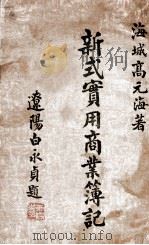 海城高元海著
新式實用商業簿記
遼陽白永貞題
mtoou.info